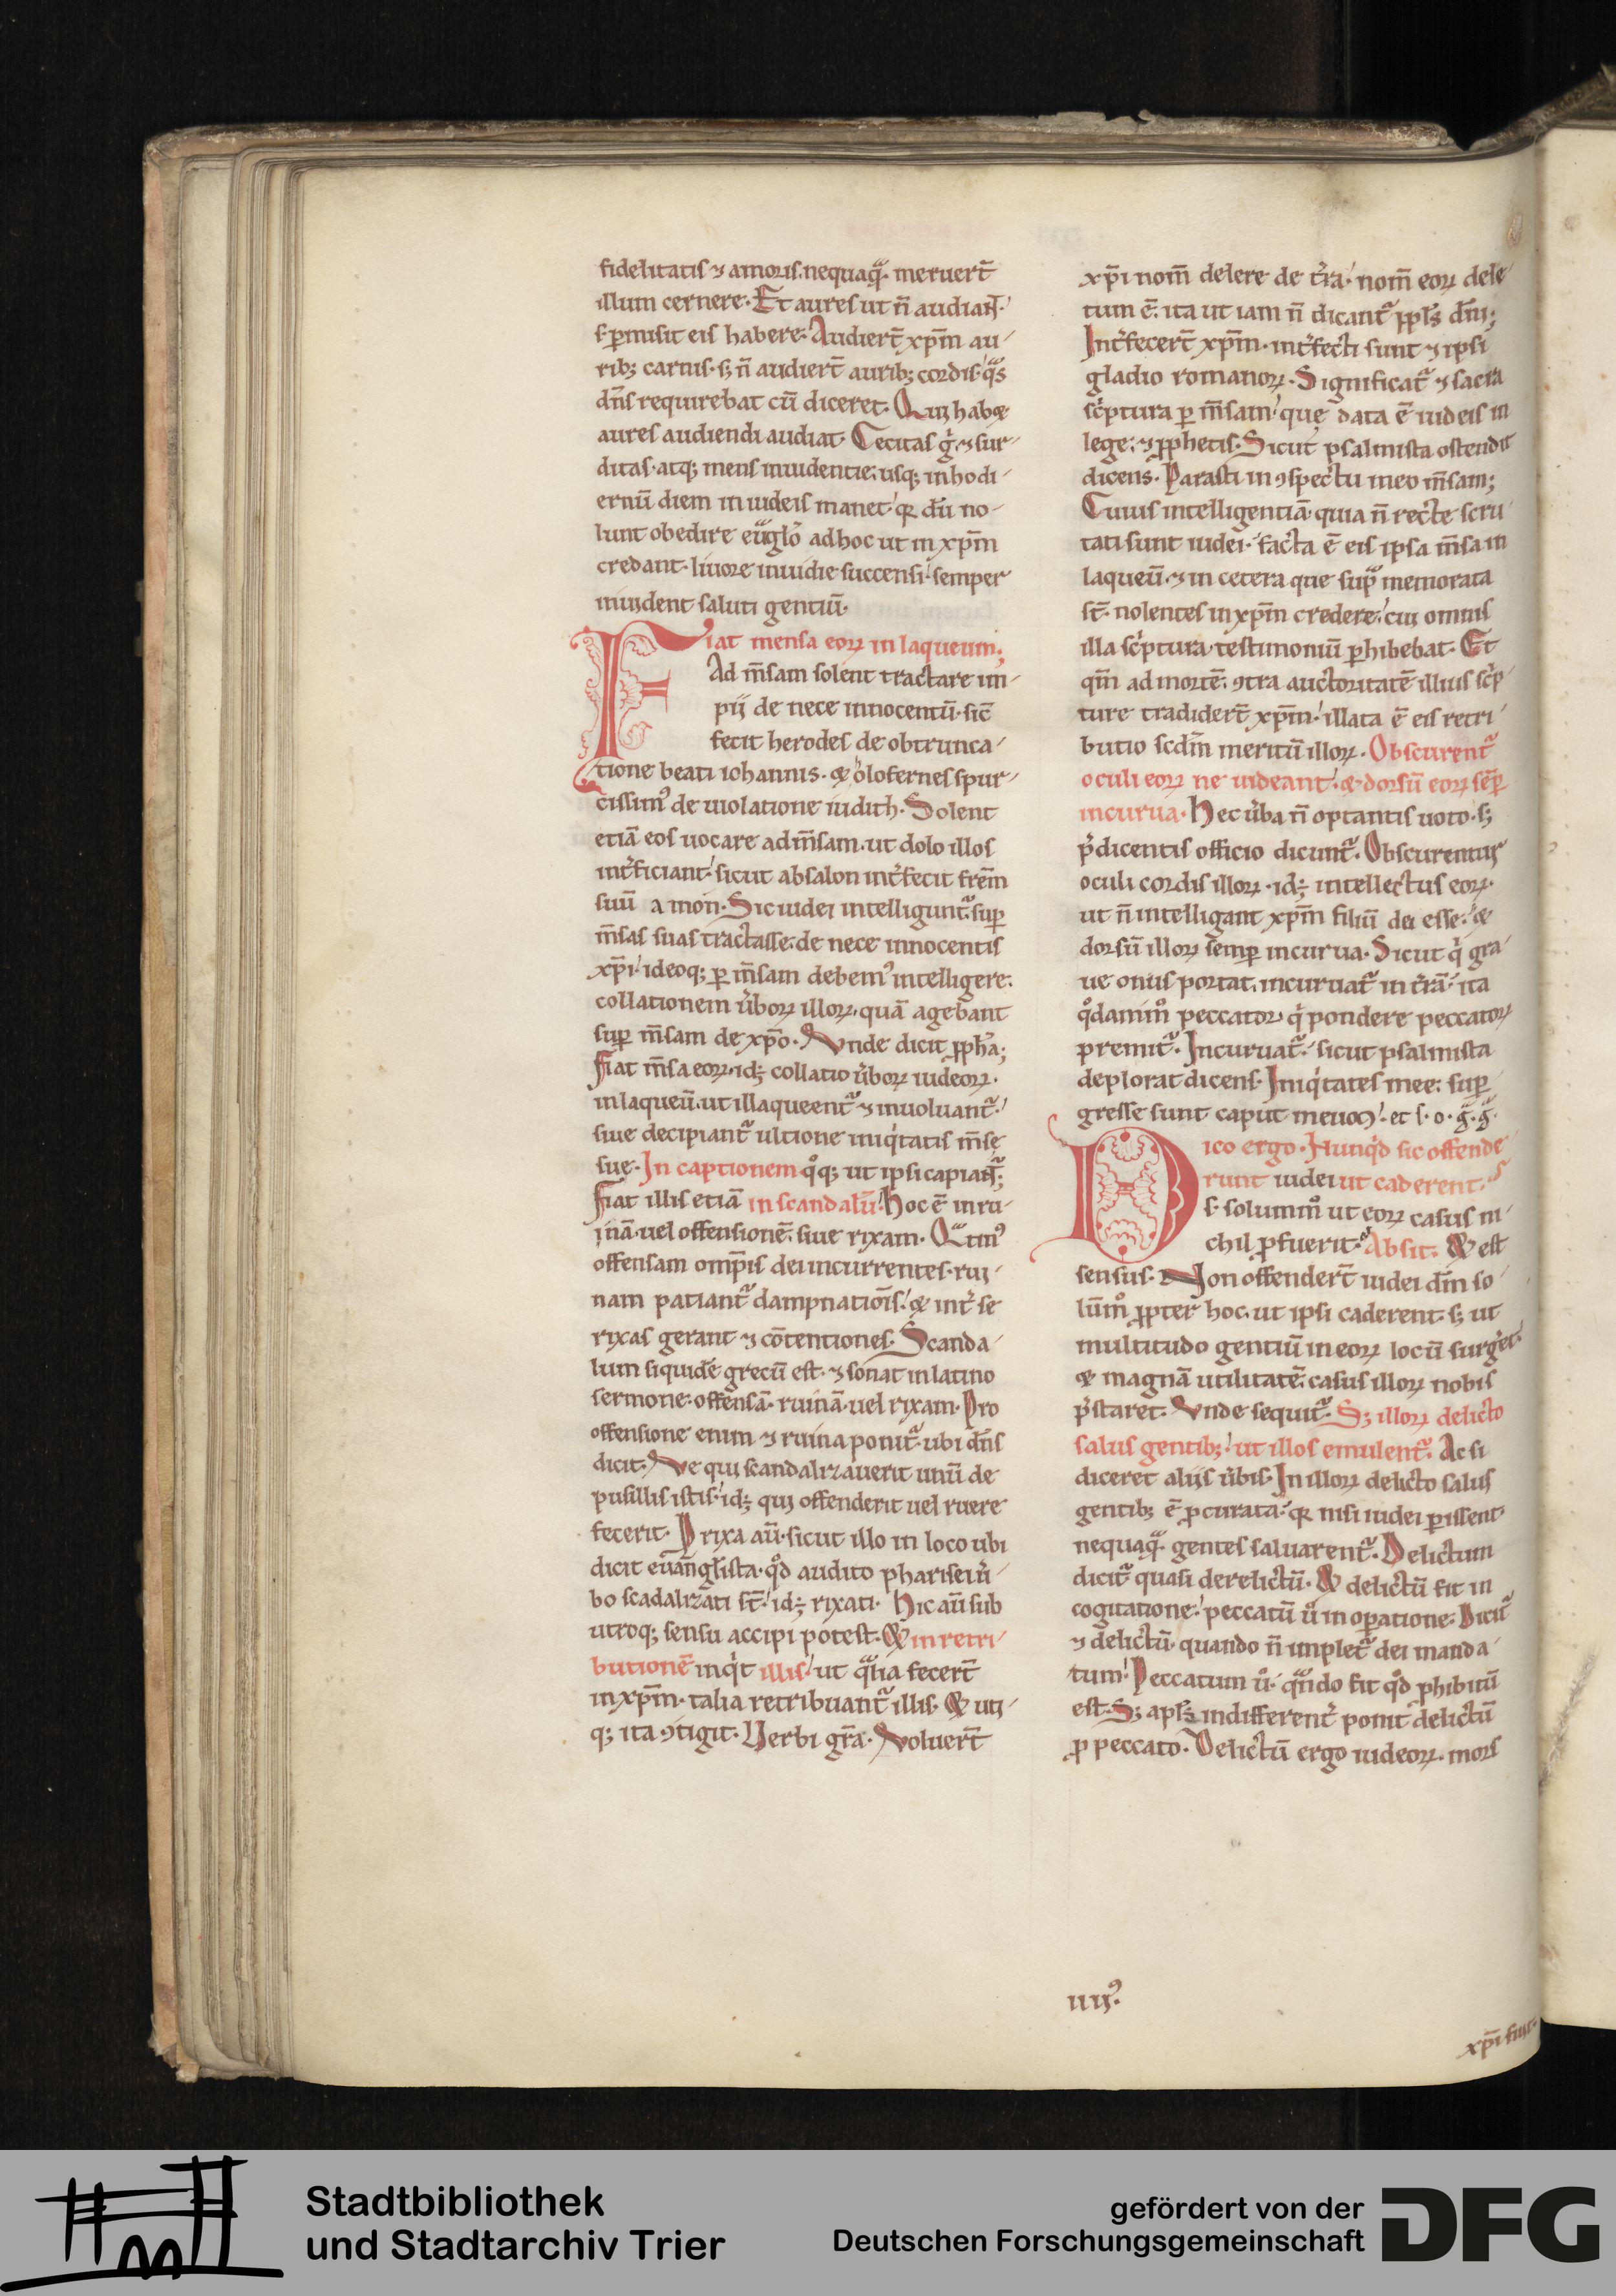 fidelitatis ⁊ amoris. nequaqᷓ. meruer̄t
illum cernere. Et aures ut n̄ audiant.
s. p̱misit eis habere. Audier̄t xp̄m au-
rib; carnis. s; n̄ audier̄t aurib; cordis. qᷓs
dn̄s requirebat cū diceret. Qui habꝫ
aures audiendi audiat. Cecitas g̊. ⁊ sur-
ditas. atq; mens inuidentie. usq; in hodi-
ernū diem in iudeis manet. qꝛ dū no-
lunt obedire euᷓglo adhoc ut in xp̄m
credant. liuore inuidie succensi. semper
inuident saluti gentiū.
Fiat mensa eoꝝ in laqueum;
Ad m̄sam solent tractare im-
pij de nece innocentū. sic̄
fecit herodes de obtrunca-
tione beati iohannis. & olofernes spur-
cissimꝰ de uiolatione iudith. Solent
etiā eos uocare ad m̄sam. ut dolo illos
int̓ficiant. sicut absalon int̓fecit frēm
suū amon. Sic iudei intelliguntᷓ. suꝑ
m̄sas suas tractasse. de nece innocentis
xp̄i. ideoq; ꝑ m̄sam debemꝰ intelligere.
collationem u̓boꝝ illoꝝ. quā agebant
suꝑ m̄sam de xp̄o. Vnde dicit ꝓph̄a;
Fiat m̄sa eoꝝ. id; collatio u̓boꝝ iudeoꝝ.
in laqueū. ut illaqueentᷓ ⁊ inuoluantᷓ.
siue decipiantᷓ ultione iniqͥtatis m̄sę
suę. In captionem qͦq; ut ipsi capiantᷓ;
Fiat illis etiā in scandalū. hoc ē in ru-
inā. uel offensionē. siue rixam. Qᷓtinꝰ
offensam omp̄is dei incurrentes. rui-
nam patiantᷓ dampnatiōis. & int̓ se
rixas gerant ⁊ cōtentiones. Scanda-
lum siquidē grecū est. ⁊ sonat in latino
sermone. offensā. ruinā. uel rixam. Pro
offensione enim ⁊ ruina ponitᷓ. ubi dn̄s
dicit. Ve qui scandalizauerit unū de
pusillis istis. id; qui offenderit uel ruere
fecerit. P rixa aū. sicut illo in loco ubi
dicit euāngl̄ista. qͦd audito pharisei u̓-
bo scādalizati st̄. id; rixati. Hic aū sub
utroq; sensu accipi potest. & in retri-
butionē inqͥt illis. ut qᷓlia fecer̄t
in xp̄m. talia retribuantᷓ illis. & uti-
q; ita ꝯtigit. Verbi gr̄a. Voluer̄t
xp̄i nom̄ delere de t̓ra. nom̄ eoꝝ dele-
tum ē. ita ut iam n̄ dicantᷓ ꝓpl̓s dn̄i;
Int̓fecer̄t xp̄m. int̓fecti sunt ⁊ ipsi
gladio romanoꝝ. Significatᷓ ⁊ sacra
sc̓ptura ꝑ m̄sam. quę data ē iudeis in
lege. ⁊ ꝓphetis. Sicut psalmista ostendit
dicens. Parasti in ꝯspectu meo m̄sam;
Cuius intelligentiā. quia n̄ recte scru-
tati sunt iudei. facta ē eis ipsa m̄sa in
laqueū. ⁊ in cetera que supᷓ memorata
st̄. nolentes in xp̄m credere. cui omnis
illa sc̓ptura testimoniū ꝑhibebat. Et
qm̄ ad mortē. ꝯtra auctoritatē illius sc̓p-
ture tradider̄t xp̄m. illata ē eis retri-
butio scdm̄ meritū illoꝝ. Obscurentᷓ
oculi eoꝝ ne uideant. & dorsū eoꝝ sēꝑ
incurua. Hec u̓ba n̄ optantis uoto. s;
p̓dicentis officio dicuntᷓ. Obscurentur
oculi cordis illoꝝ. id; intellectus eoꝝ.
ut n̄ intelligant xp̄m filiū dei esse. &
dorsū illoꝝ semꝑ incurua. Sicut qͥ gra-
ue onus portat. incuruatᷓ in t̓rā. ita
qͦdammͦ peccator qͥ pondere peccatoꝝ
premitᷓ. Incuruatᷓ. sicut psalmista
deplorat dicens. Iniqͥtates mee. suꝑ-
gresse sunt caput meum. et s. o. g̊. g̊.
Dico ergo. Nunqͥd sic offende-
runt iudei ut caderent.
s. solummͦ ut eoꝝ casus ni-
chil ꝓfuerit. Absit. & est
sensus. Non offender̄t iudei dm̄ so-
lūmͦ ꝓpter hoc. ut ipsi caderent. s; ut
multitudo gentiū in eoꝝ locū surg̓et.
& magnā utilitatē. casus illoꝝ nobis
p̓staret. Vnde sequitᷓ. S; illoꝝ delicto
salus gentib;. ut illos emulentᷓ. Ac si
diceret alijs u̓bis. In illoꝝ delicto salus
gentib; ē ꝓcurata. qꝛ nisi iudei ꝑissent
nequaqᷓ. gentes saluarentᷓ. Delictum
dicitᷓ quasi derelictū. & delictū fit in
cogitatione. peccatū u̓ in oꝑatione. Dicitᷓ
⁊ delictū. quando n̄ impletᷓ dei manda-
tum. Peccatum u̓. qᷓndo fit qͦd ꝓhibitū
est. S; apl̓s indifferent̓ ponit delictū
ꝓ peccato. Delictū ergo iudeoꝝ. mors
uijꝰ.
xp̄i fuit.
Stadtbibliothek
und Stadtarchiv Trier
gefördert von der
Deutschen Forschungsgemeinschaft
DFG